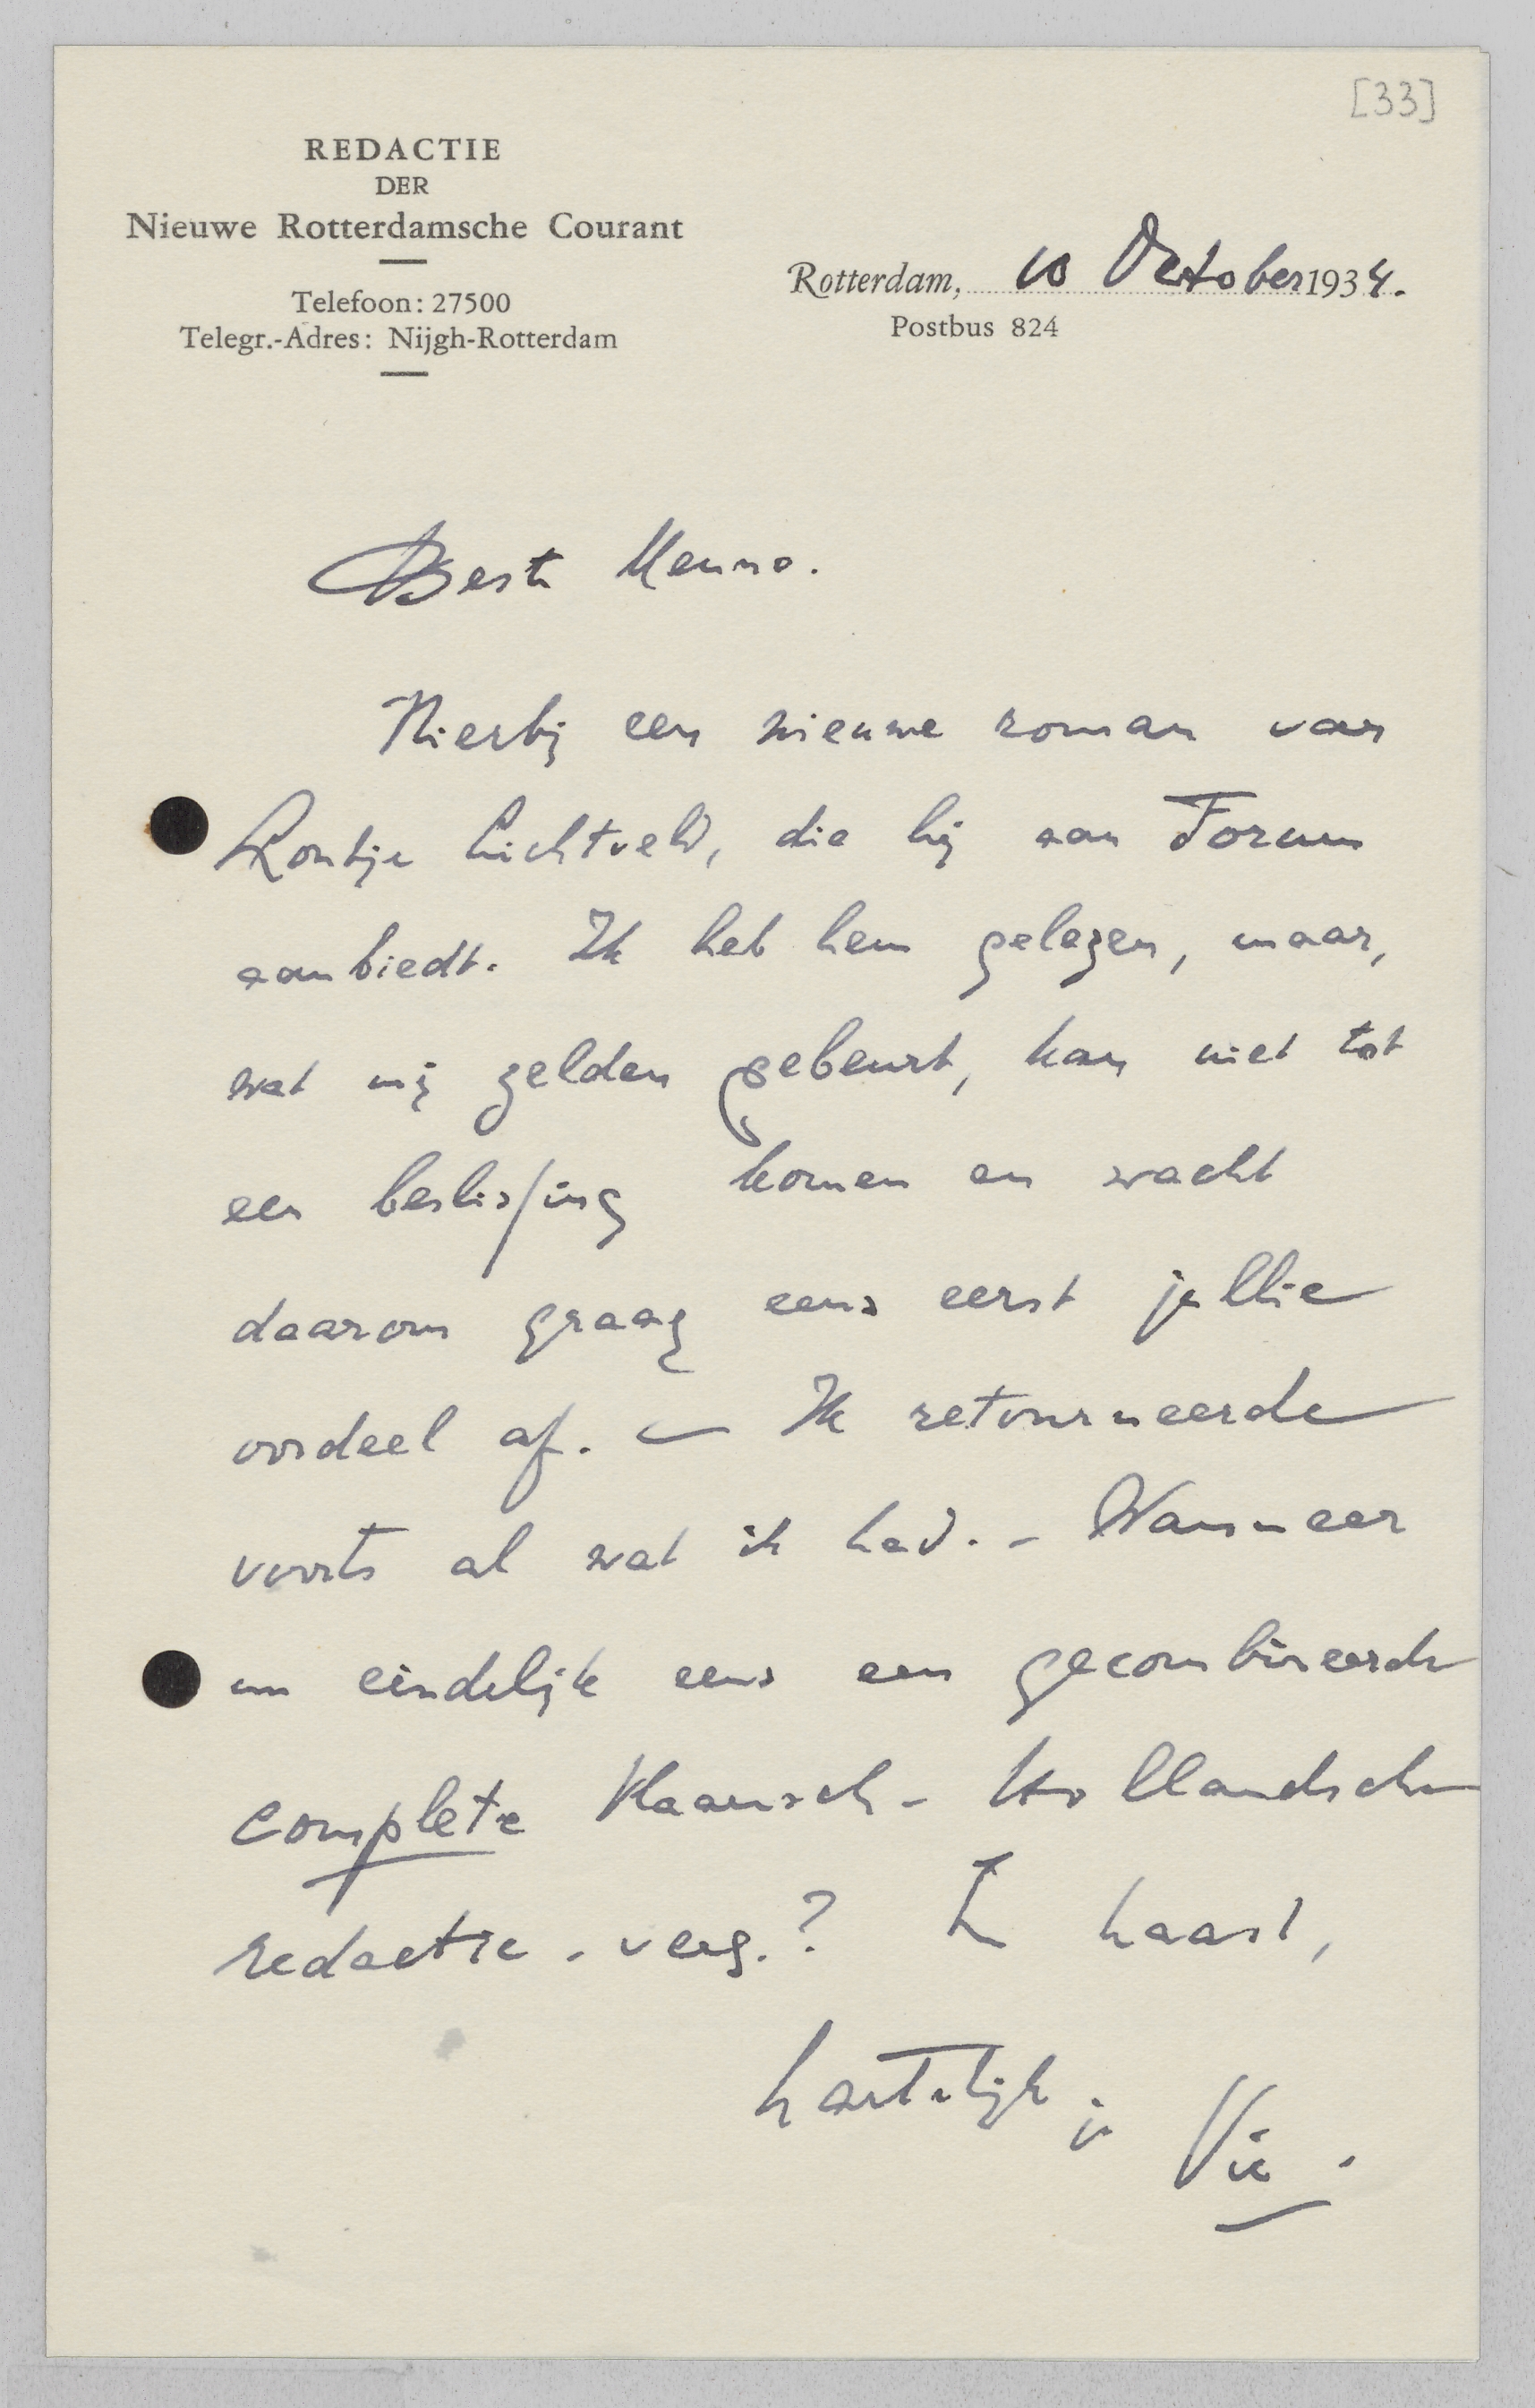 [33]
REDACTIE
DER
Nieuwe Rotterdamsche Courant
Telefoon: 27500
Telegr.-Adres: Nijgh-Rotterdam
Rotterdam, 10 October 1934.
Postbus 824
Beste Menno.
Hierbij een nieuwe roman van
Loutje Lichtveld, die hij aan Forum
aanbiedt. Ik heb hem gelezen, maar,
wat mij zelden gebeurt, kan niet tot
een beslissing komen en wacht
daarom graag eens eerst jullie
oordeel af. — Ik retourneerde
voorts al wat ik had. — Wanneer
nu eindelijk eens een gecombineerde
complete Vlaamsch-Hollandsche
redactie-verg.? In haast,
hartelijk je Vic.